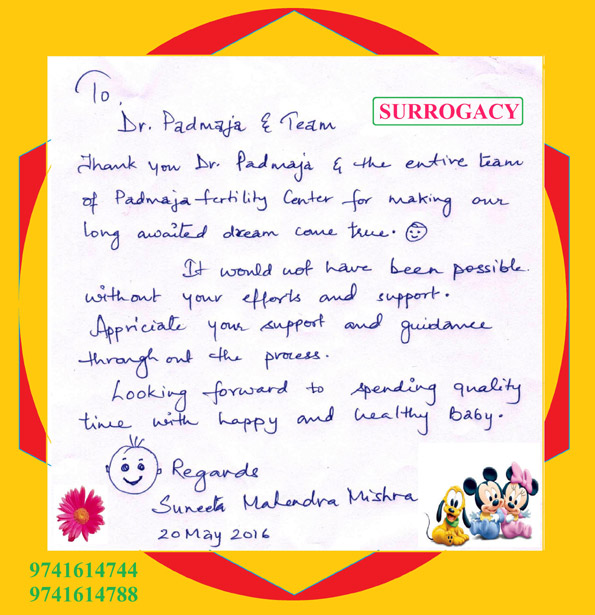 To,
Dr. Padmaja & Team
SURROGACY
Thank you Dr. Padmaja & the entire team
of Padmaja fertility Center for making our
long awaited dream come true.
It would not have been possible.
without your efforts and support.
Appriciate your support and guidance
through out the process.
Looking forward to spending quality
time with happy and healthy Baby.
Regards
Suneeta Mahendra Mishra
20 May 2016
9741614744
9741614788